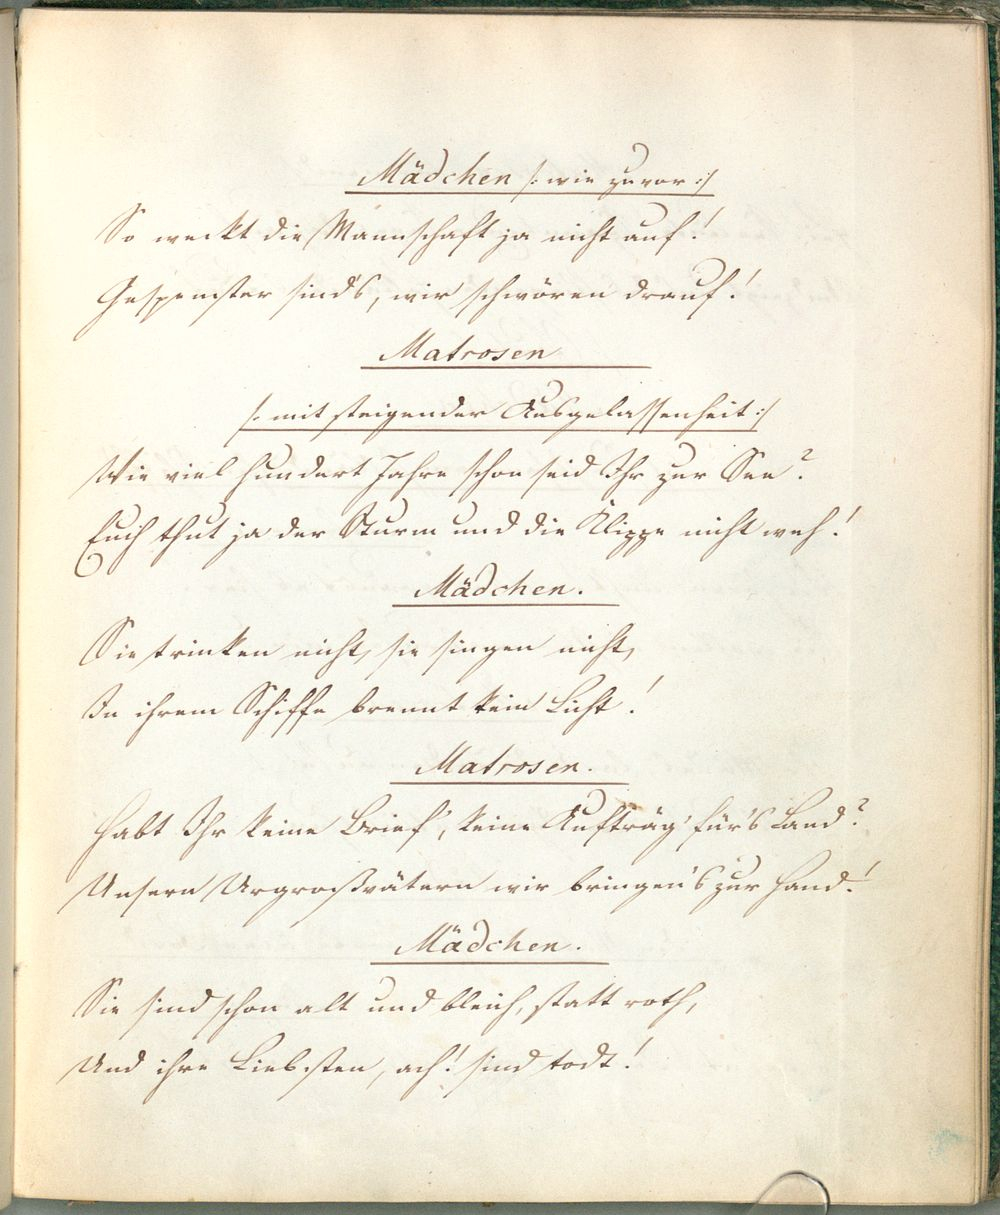 Mädchen /: wie zuvor :/
So weckt die Mannschaft ja nicht auf!
Gespenster sind's, wir schwören drauf!
Matrosen
/: mit steigender Ausgelassenheit :/
Wie viel hundert Jahre schon seid Ihr zur See?
Euch thut ja der Sturm und die Klippe nicht weh!
Mädchen.
Sie trinken nicht, sie singen nicht,
In ihrem Schiffe brennt kein Licht!
Matrosen.
Habt Ihr keine Brief', keine Aufträg' für's Land?
Unsern Urgroßvätern wir bringen's zur Hand!
Mädchen.
Sie sind schon alt und bleich, statt roth,
Und ihre Liebsten, ach! sind todt!